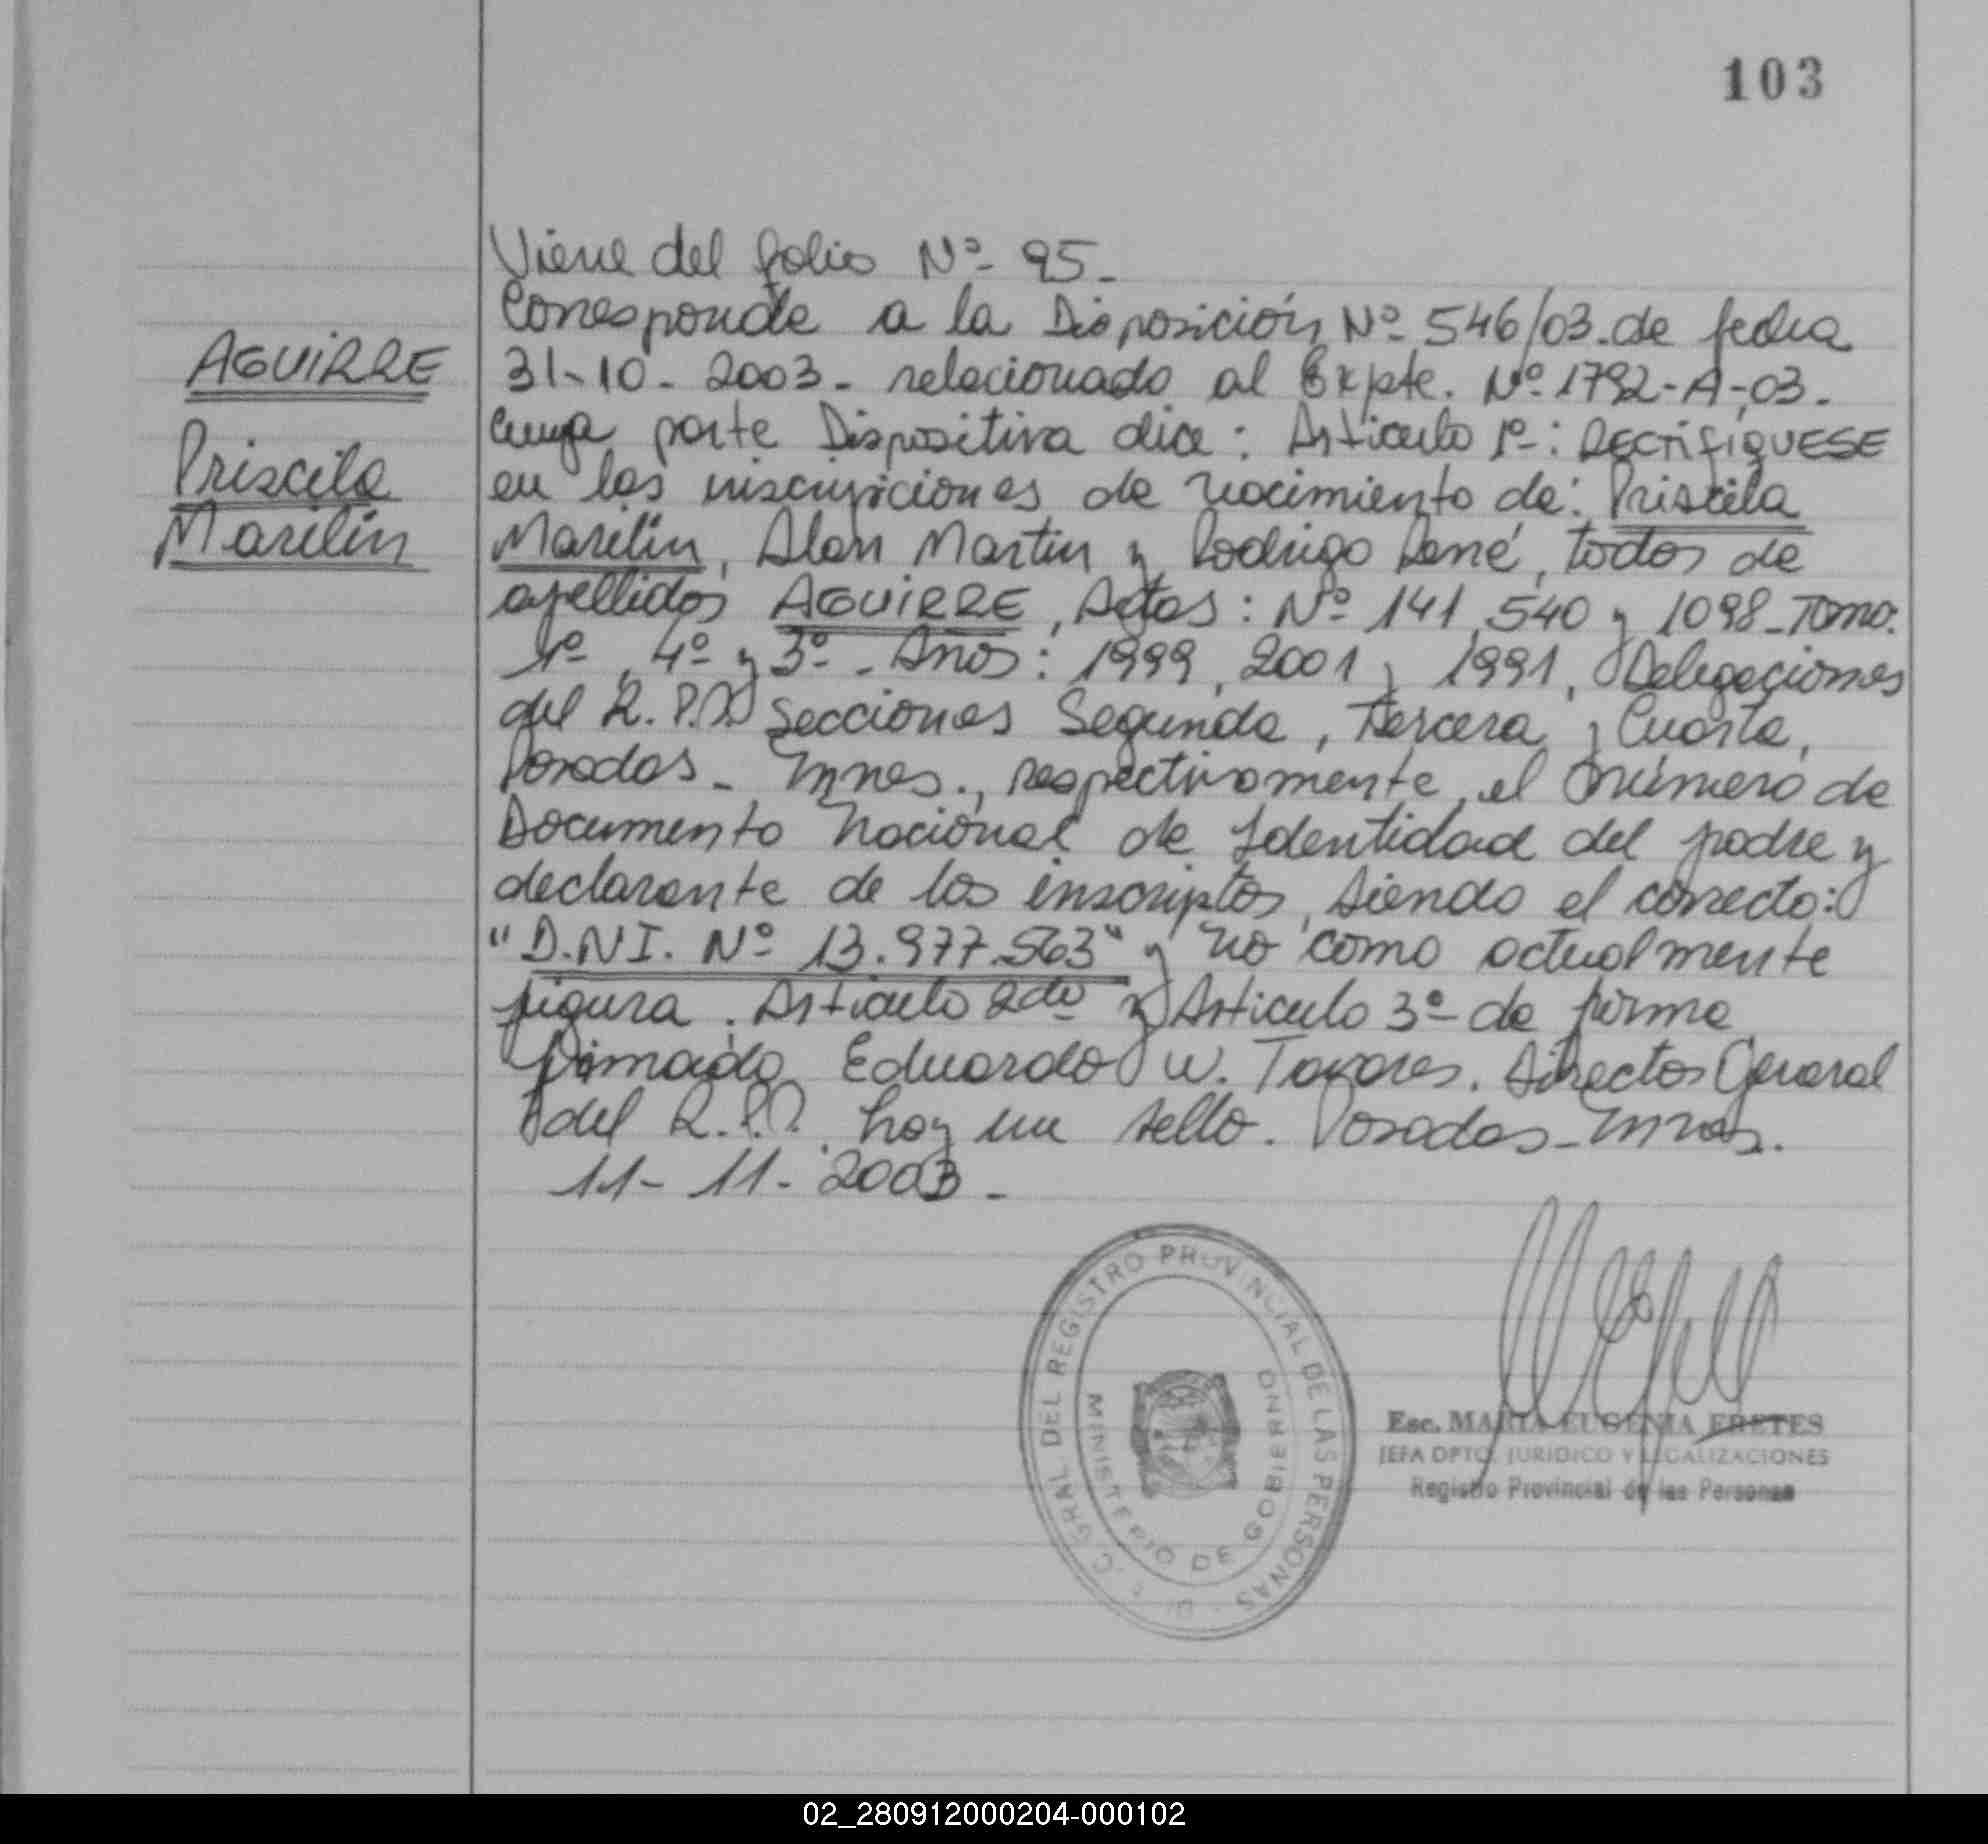 103
Viene del folio Nº 95.
Corresponde a la Disposición Nº 546/03. de fecha
31-10-2003- relacionado al Expte. Nº 1792-A-03.
Cuya parte Dispositiva dice: Articulo 1º: RECTIFIQUESE
en las inscripciones de nacimiento de: Priscila
Marilin, Alan Martin y Rodrigo René, todos de
apellidos AGUIRRE, Actas: Nº 141, 540 y 1098-Tomo:
1º, 4º y 3º- Años: 1999, 2001 y 1991, Delegaciones
del R.P.P. Secciones Segunda, Tercera y Cuarta,
Posadas- Mnes., respectivamente, el número de
Documento Nacional de Identidad del padre y
declarante de los inscriptos, siendo el correcto:
"D.N.I. Nº 13.977.563" y no como actualmente
figura. Articulo 2do y Articulo 3º de forma
Firmado Eduardo W. Tavares. Director General
del R.P.P. hay un sello. Posadas-Mnes.
11-11-2003-
AGUIRRE
Priscila
Marilin
GRAL DEL REGISTRO PROVINCIAL DE LAS PERSONAS
MINISTERIO DE GOBIERNO
Esc. MARIA EUGENIA FRETES
JEFA DPTO. JURIDICO Y LEGALIZACIONES
Registro Provincial de las Personas
02_280912000204-000102